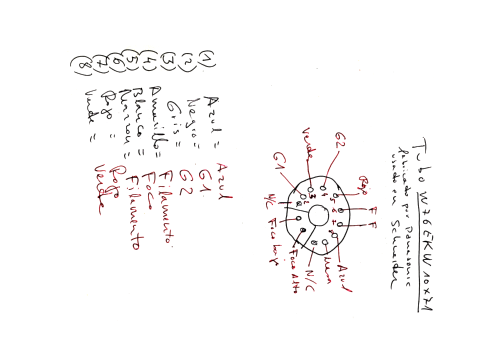 Tubo W76EKW10X71
fabricado por Panasonic
usado en Schneider
G2
Verde
G1
N/C
Foco bajo
Foco Alto
N/C
Azul
F
F
Rojo
(1) Azul = Azul
(2) Negro = G1
(3) Gris = G2
(4) Amarillo = Filamento
(5) Blanco = Foco
(6) Marron = Filamento
(7) Rojo = Rojo
(8) Verde = Verde